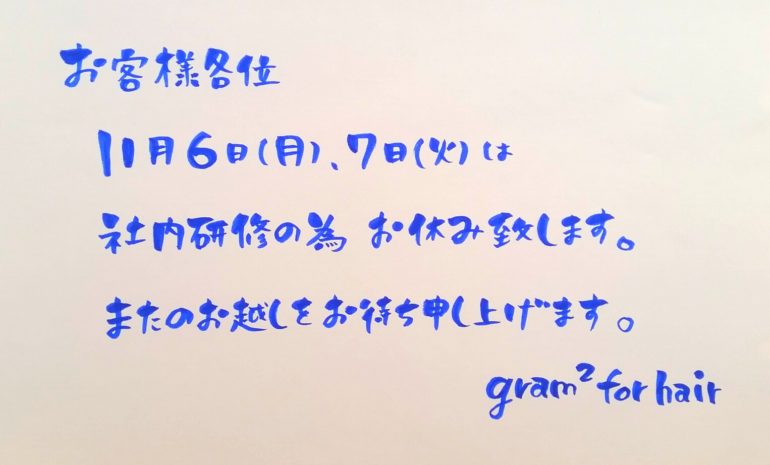 お客様各位
11月6日(月)、7日(火)は
社内研修の為 お休み致します。
またのお越しをお待ち申し上げます。
gram² for hair